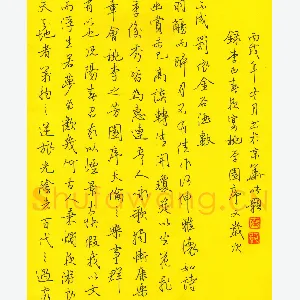 天地者萬物之逆旅光陰者百代之過客
而浮生若夢為歡幾何古人秉燭夜遊良
有以也況陽春召我以煙景大塊假我以文
章會桃李之芳園序天倫之樂事群
季俊秀皆為惠連吾人詠歌獨慚康樂
幽賞未已高談轉清開瓊筵以坐花飛
羽觴而醉月不有佳作何伸雅懷如詩
不成罰依金谷酒數
錄李白春夜宴桃李園序文歲次
丙戌年十月於京華
Shufawang.Cn